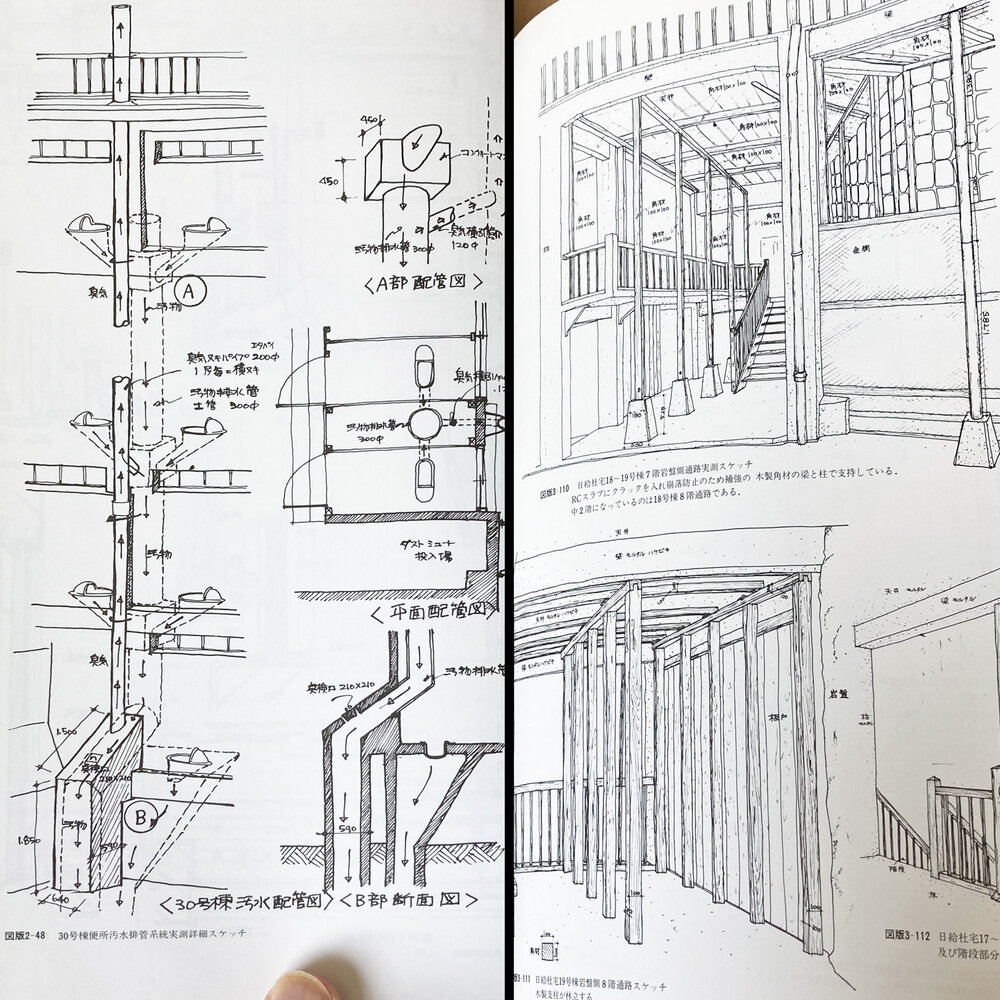 450
450
汚物排水管 300φ
臭気横引管
120φ
<A部配管図>
A
臭気
汚物
臭気ヌキパイプ 200φ
汚物排水管
土管 300φ
汚物排水管
300φ
ダストシュート
投入場
<平面配管図>
汚物
臭気
汚物排水管
臭検口 210×210
1.500
臭検口
210×210
汚物
B
1.850
590
640
590
<30号棟汚水配管図>
<B部断面図>
図版2-48 30号棟便所汚水排管系統実測詳細スケッチ
梁
角材
100×100
壁
天井
角材100×100
角材
100×100
角材100×100
角材100×100
角材
100×100
角材
100×100
角材
100×100
角材
100×100
角材
100×100
金網
図版3-110 日給社宅18〜19号棟7階岩盤側通路実測スケッチ
RCスラブにクラックを入れ崩落防止のため補強の 木製角材の梁と柱で支持している.
中2階になっているのは18号棟8階通路である.
天井
梁 モルタルハケビキ
天井 モルタルハケビキ
梁 モルタルハケビキ
板戸
岩盤
100
100
角材
図版3-111 日給社宅19号棟岩盤側8階通路スケッチ
木製支柱が林立する
天井 モルタル
梁 モルタル
柱
モルタル
階段
床
図版3-112 日給社宅17〜
及び階段部分